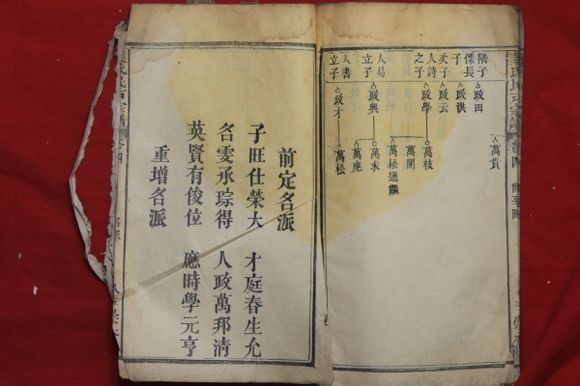 階子
政田
萬貴
傑長
子
政洪
次子
政云
人詩
之子
政學
萬枝
萬開
萬松過繼
人易
立子
政興
萬求
萬應
人書
立子
政才
萬松
前定名派
子旺仕榮大 才庭春生允
名雯承琮得 人政萬邦清
英賢有俊位 應時學元亨
重增名派